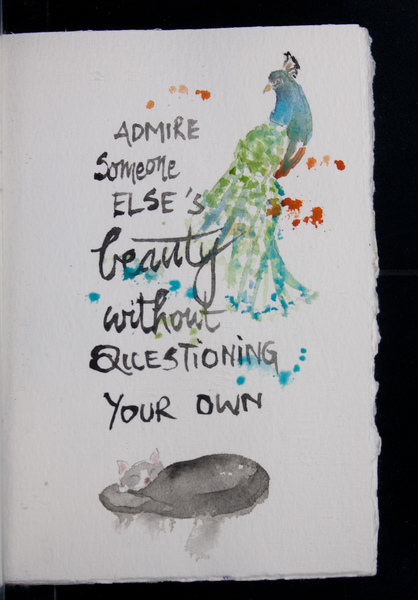 ADMIRE
Someone
ELSE'S
beauty
without
QUESTIONING
YOUR OWN